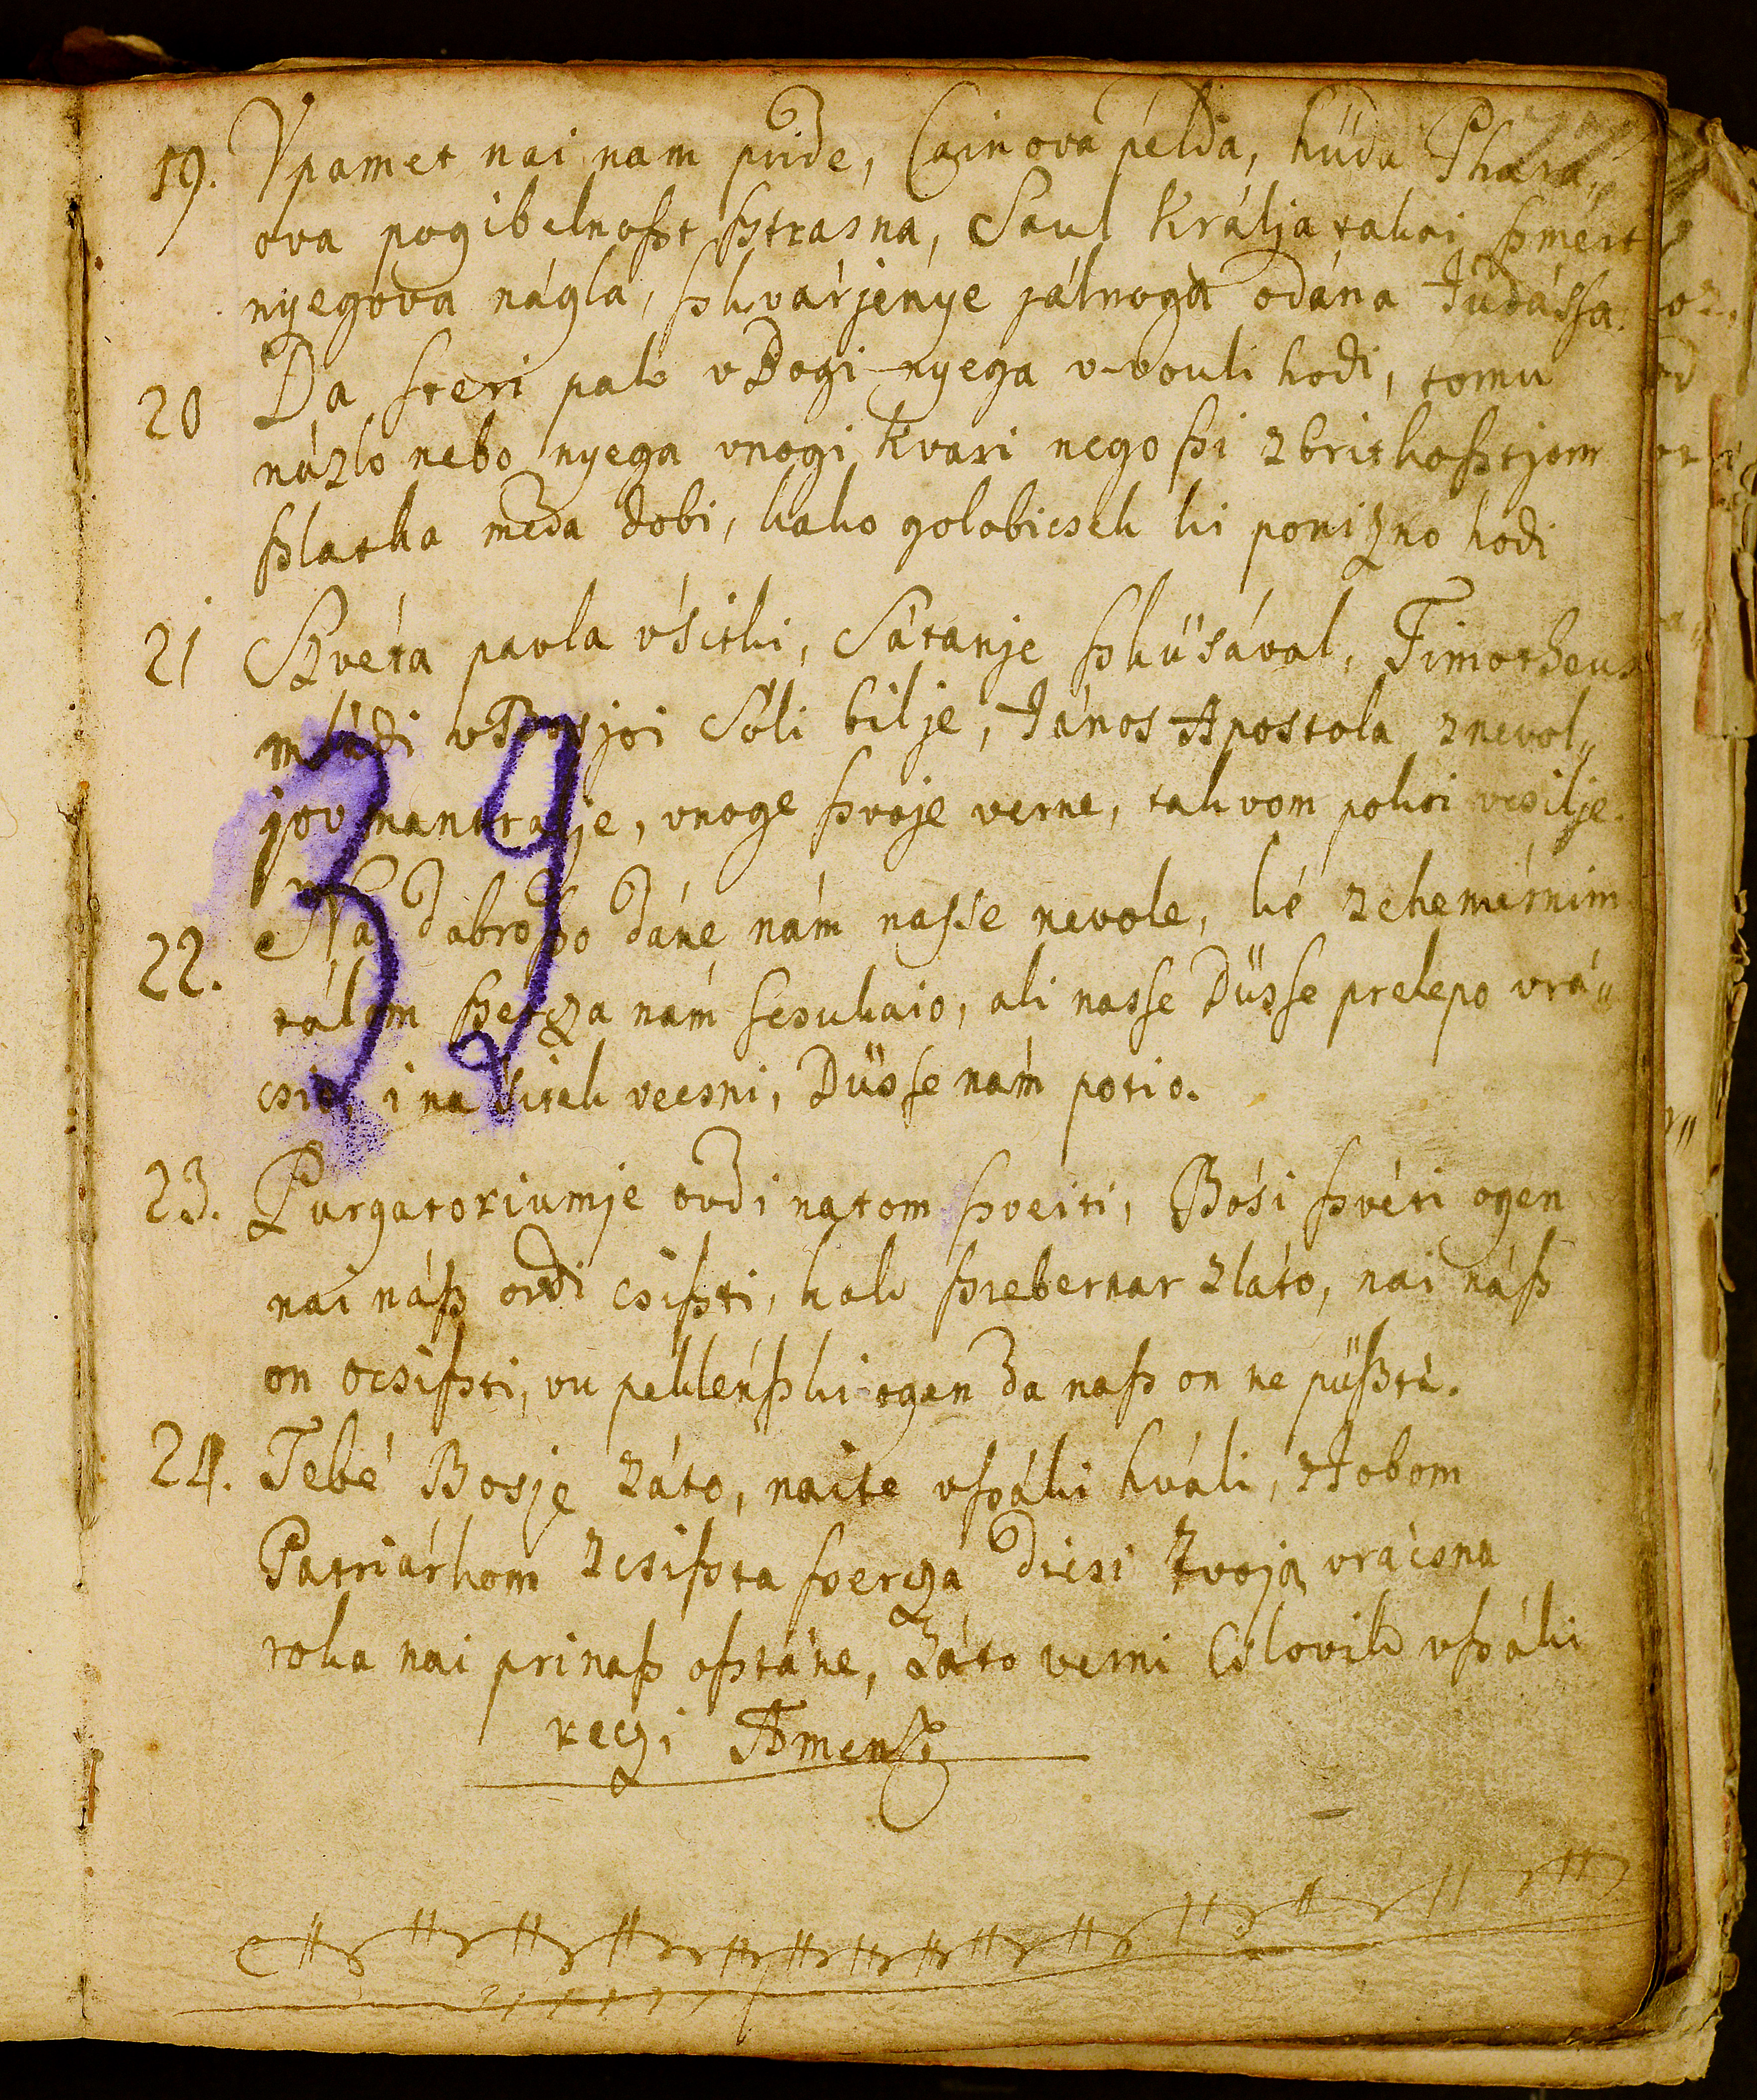 19. Vpamet nai nam pride, Cainova példa, hüda Phara„
ova pogibelnoſzt ſztrasna, Saul Králja takai ſzmért
nyegova nágla, ſzkvárjenye jálnoga odána Júdáſsa.
20 Da ſteri pak vBogi nyega v-vouli hodi, tomu
názlo nebo nyega vnogi kvari nego ſzi zbritkoſztjom
ſzlatka meda dobi, kako golobicsek ki ponizno hodi
21 Szvéta pavla vsitki, Sátanje ſzküsával, Timotheus
mládi vBosjoi Soli bilje, János Apostola znevol„
jov mantralje, vnoge ſzvoje verne, takvom pokoi veſilje.
22. Na dabro ſzo dáne nám naſse nevole, ké zchemérnim
tálom ſzercza nám ſcsukaio, ali nasſe Düsſe prelepo vrá„
csio, i na sitek vecsni, Düsſe nám potio.
23. Purgatoriumje ovdi natom ſzveiti, Bósi ſzvéti ogen
nai náſz ovdi csiſzti, kak ſzrebernar zláto, nai náſz
on ocsiſzti, vu pekléńſzki ogen da naſz on ne püſzti.
24. Tebé Bosje záto, naite vſzáki hváli, zJobom
Patriárkom zcsiſzta ſzercza dicsi tvoja vrácsna
roka nai prinaſz oſztáne, Záto verni Cslovik vſzáki
reczi Amen
39